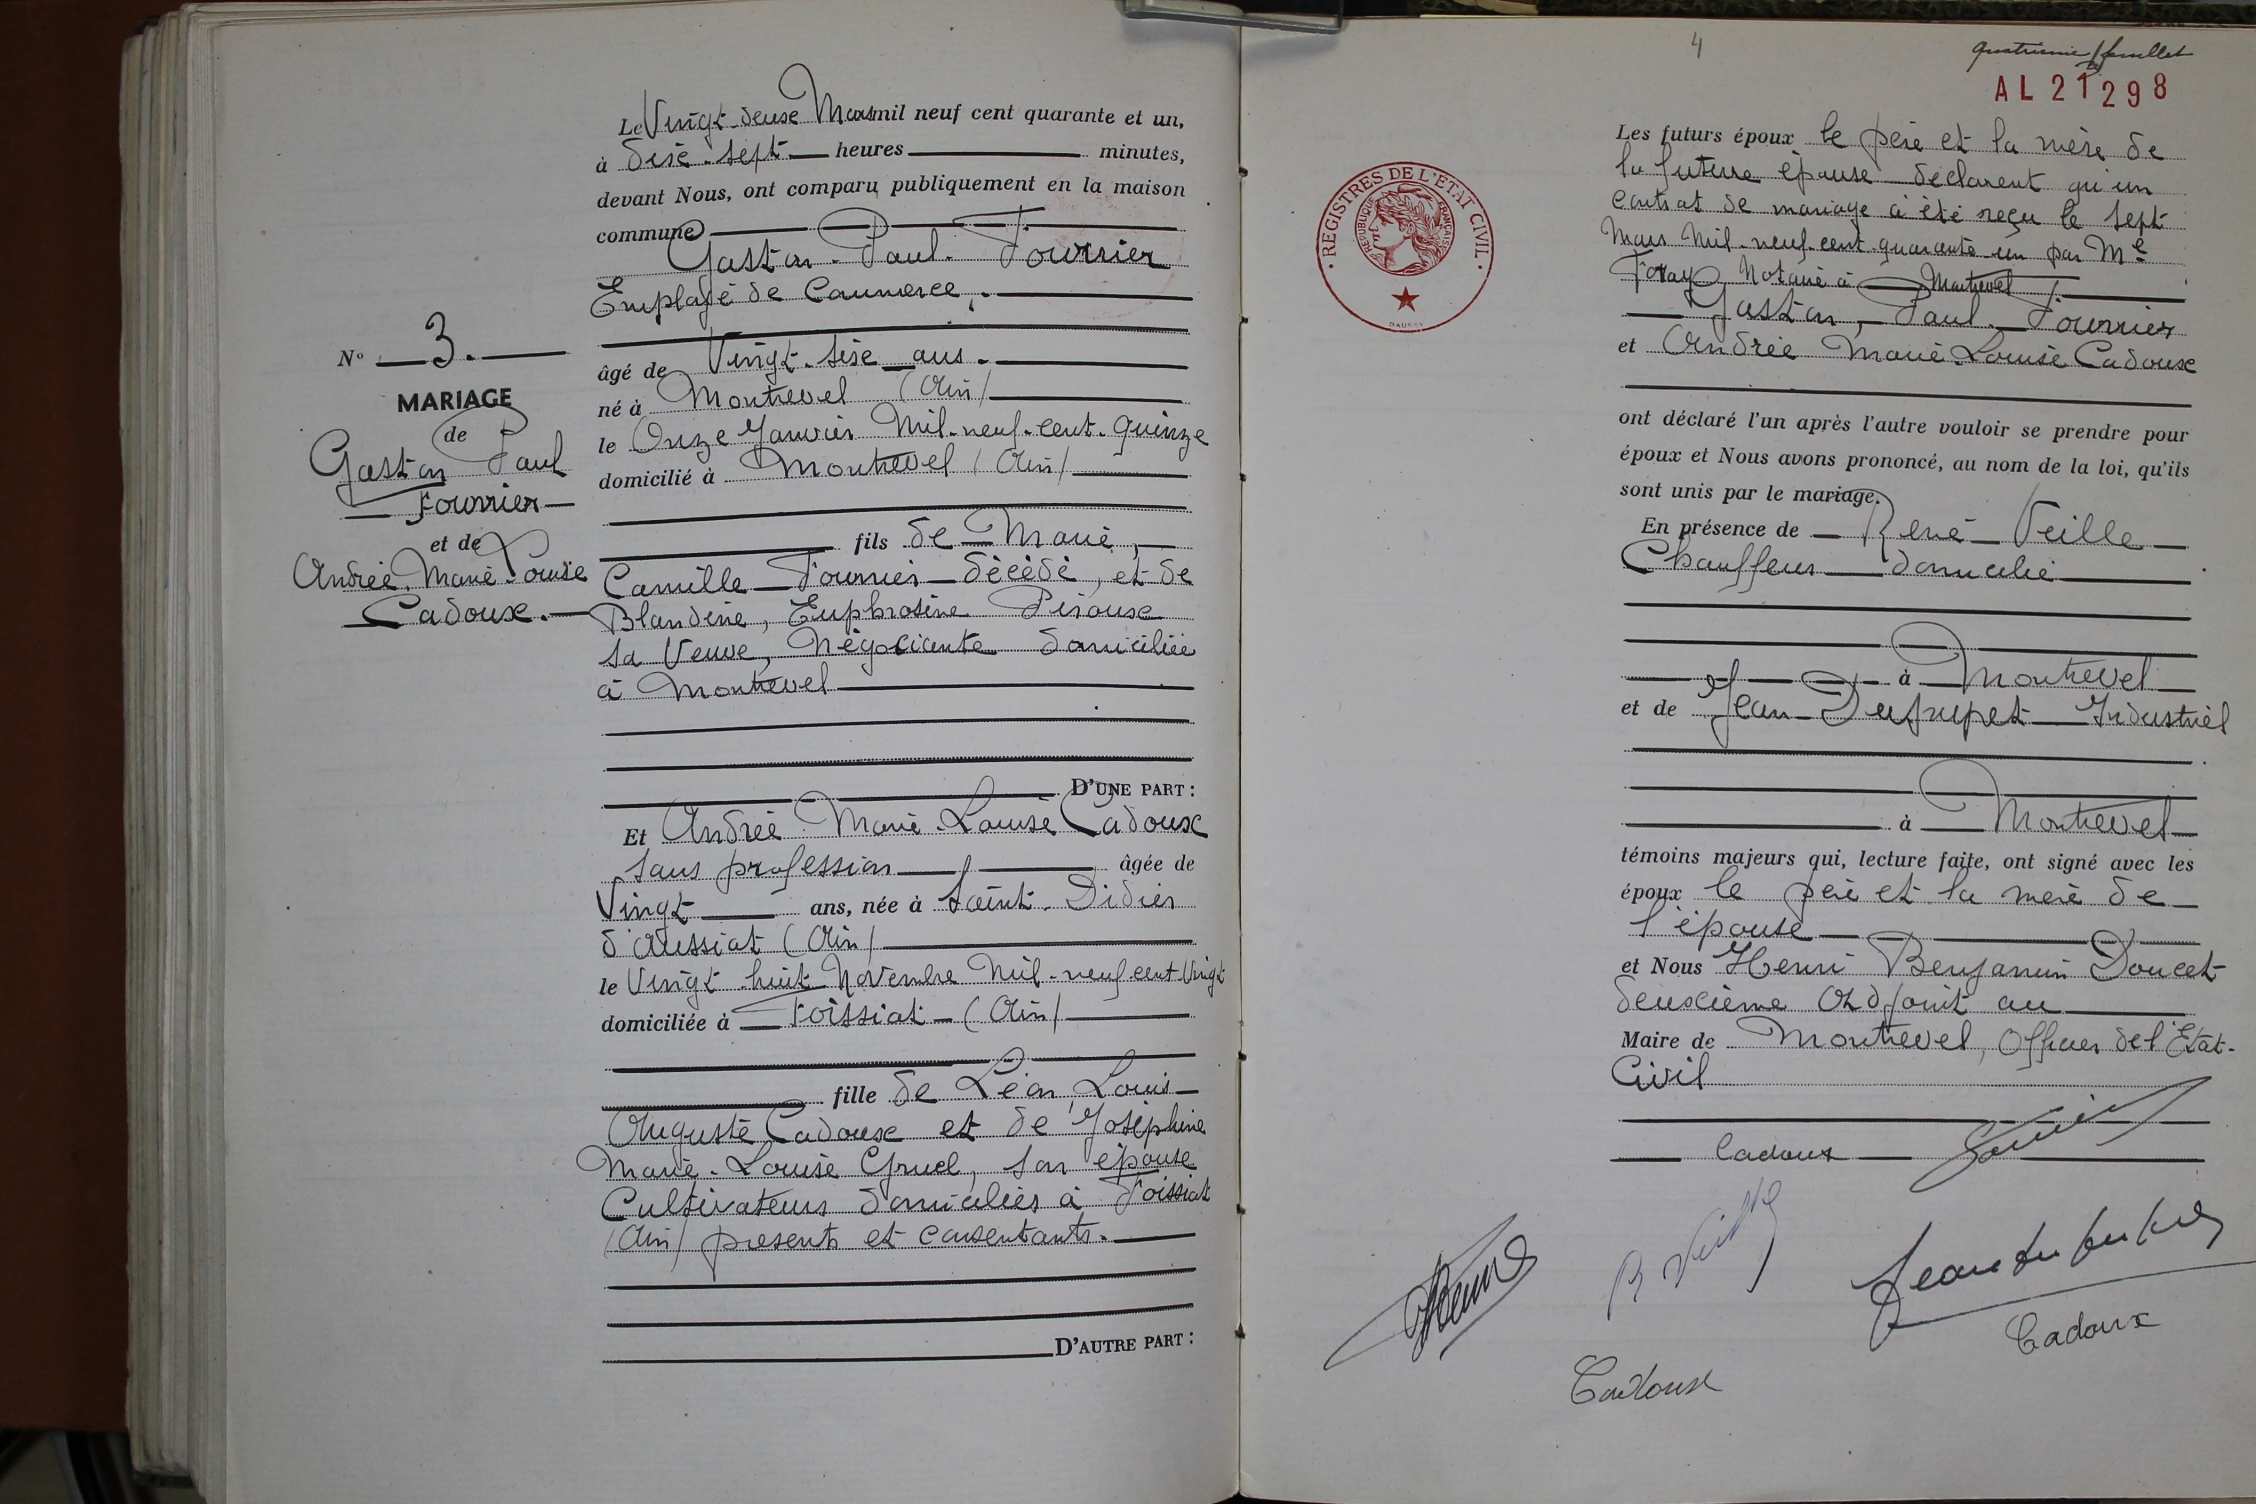 Le Vingt-deux Mars mil neuf cent quarante et un,
à dix-sept heures minutes,
devant Nous, ont comparu publiquement en la maison
commune
Gaston Paul Fourrier
Employé de Commerce
N° 3.
MARIAGE
de
Gaston Paul
Fourrier
et de
Andrée Marie Louise
Cadoux.
âgé de Vingt-six ans.
né à Montrevel (Ain)
le Onze Janvier Mil-neuf-cent-quinze
domicilié à Montrevel (Ain)
fils de Marie,
Camille Fourrier décédé, et de
Blandine, Euphrosine Piroux
sa Veuve, Négociante domiciliée
à Montrevel
D'UNE PART :
Et Andrée Marie-Louise Cadoux
sans profession âgée de
Vingt ans, née à Saint-Didier
d'Aussiat (Ain)
le Vingt-huit Novembre Mil-neuf cent Vingt
domiciliée à Foissiat (Ain)
fille de Léon, Louis
Auguste Cadoux et de Joséphine
Marie-Louise Gruel, son épouse
Cultivateurs domiciliés à Foissiat
(Ain) présents et consentants.
D'AUTRE PART :
4
quatrième feuillet
AL 21298
REGISTRES DE L'ÉTAT CIVIL
RÉPUBLIQUE FRANÇAISE
Les futurs époux le père et la mère de
la future épouse déclarent qu'un
contrat de mariage a été reçu le sept
Mars Mil-neuf-cent-quarante-un par Me
Foray Notaire à Montrevel
Gaston, Paul Fourrier
et Andrée Marie-Louise Cadoux
ont déclaré l'un après l'autre vouloir se prendre pour
époux et Nous avons prononcé, au nom de la loi, qu'ils
sont unis par le mariage.
En présence de René Veille
Chauffeur domicilié
à Montrevel
et de Jean Dufupet Industriel
à Montrevel
témoins majeurs qui, lecture faite, ont signé avec les
époux le père et la mère de
l'épouse
et Nous Henri Benjamin Doucet
deuxième Adjoint au
Maire de Montrevel, Officier de l'Etat-
Civil
Cadoux
R Veille
Cadoux
Cadoux